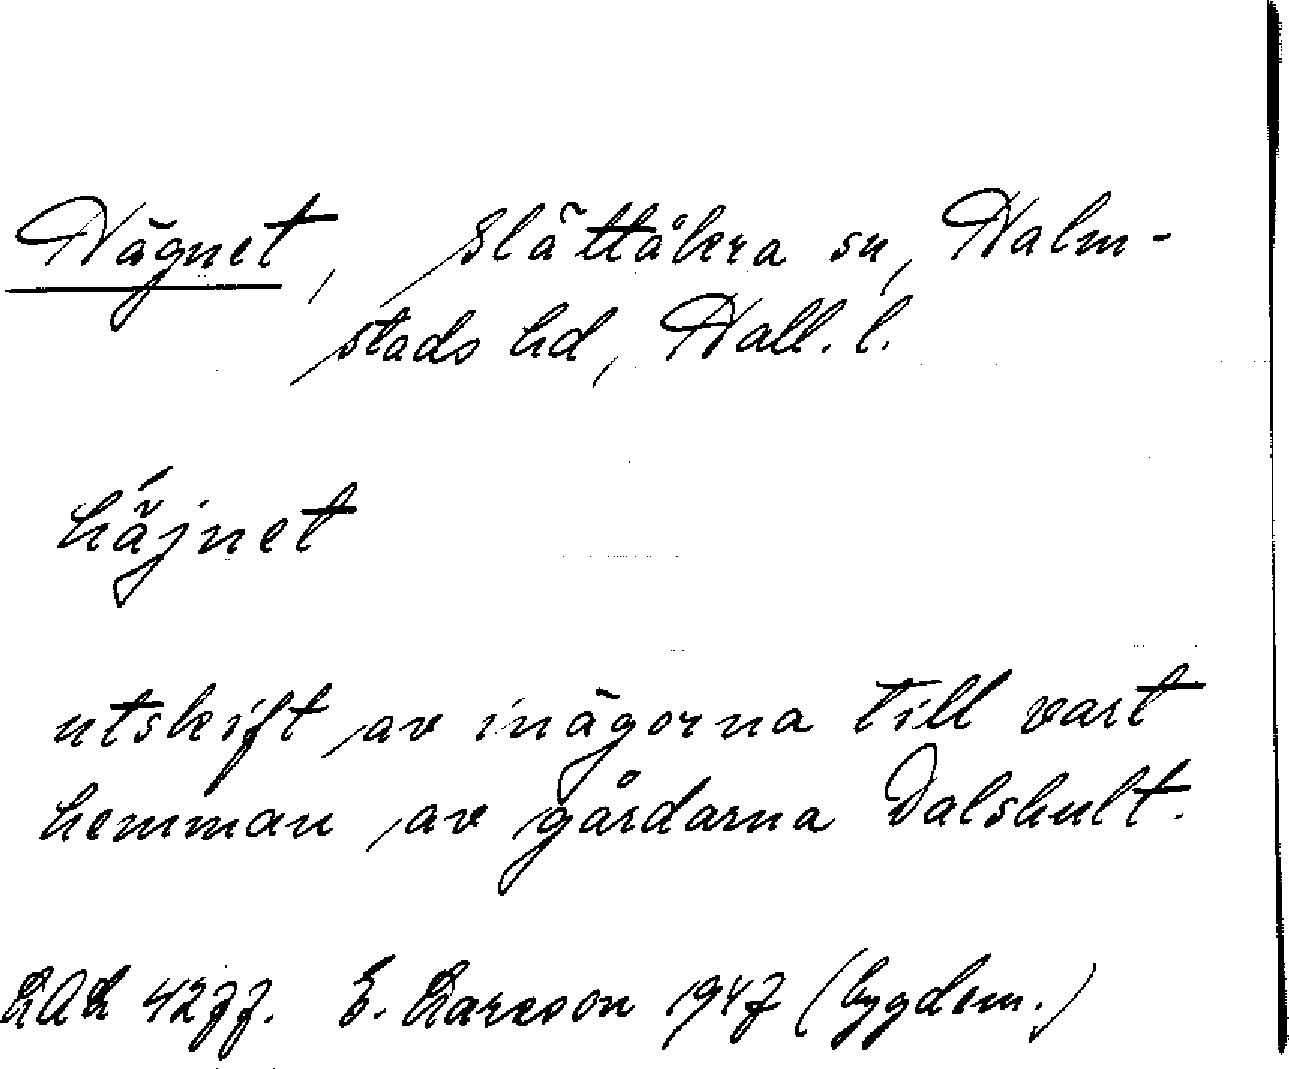 Hägnet, Slättåkra sn, Halm-
stads hd, Hall. l.
hä́jnet
utskift av inägorna till vart
hemman av gårdarna Dalshult.
LAL 4277. E. Larsson 1947 (bygdem.)